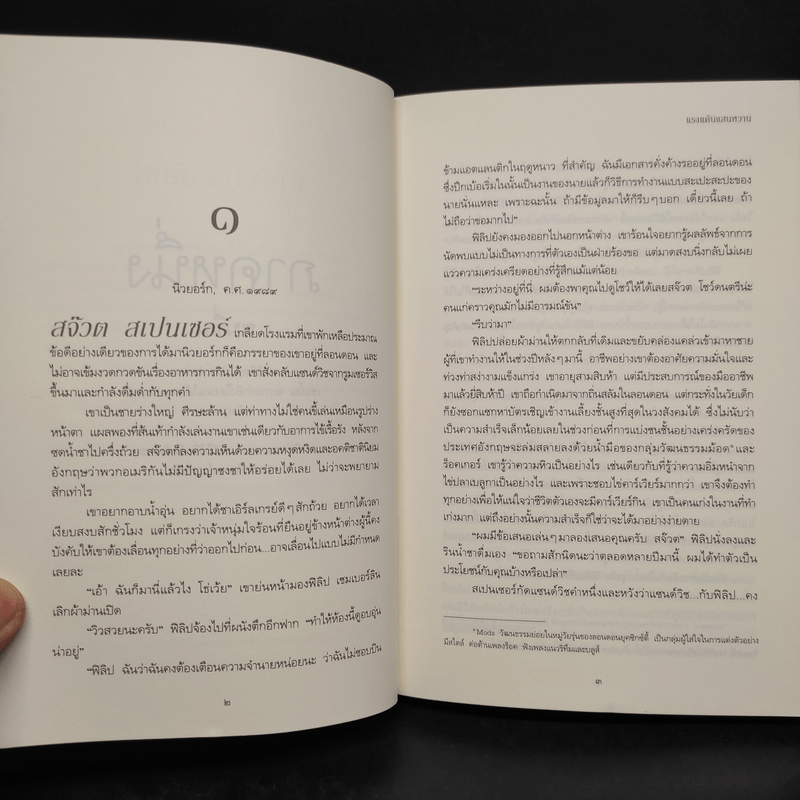 ๑
นิวยอร์ก, ค.ศ.๑๙๘๙
สจ๊วต สเปนเซอร์ เกลียดโรงแรมที่เขาพักเหลือประมาณ
ข้อดีอย่างเดียวของการได้มานิวยอร์กก็คือภรรยาของเขาอยู่ที่ลอนดอน และ
ไม่อาจเข้มงวดกวดขันเรื่องอาหารการกินได้ เขาสั่งคลับแซนด์วิชจากรูมเซอร์วิส
ขึ้นมาและกำลังดื่มด่ำกับทุกคำ
เขาเป็นชายร่างใหญ่ ศีรษะล้าน แต่ท่าทางไม่ใช่คนขี้เล่นเหมือนรูปร่าง
หน้าตา แผลพองที่ส้นเท้ากำลังเล่นงานเขาเช่นเดียวกับอาการไข้เรื้อรัง หลังจาก
ซดน้ำชาไปครึ่งถ้วย สจ๊วตก็ลงความเห็นด้วยความหงุดหงิดและอคติชาตินิยม
อังกฤษว่าพวกอเมริกันไม่มีปัญญาชงชาให้อร่อยได้เลย ไม่ว่าจะพยายาม
สักเท่าไร
เขาอยากอาบน้ำอุ่น อยากได้ชาเอิร์ลเกรย์ดีๆสักถ้วย อยากได้เวลา
เงียบสงบสักชั่วโมง แต่ก็เกรงว่าเจ้าหนุ่มใจร้อนที่ยืนอยู่ข้างหน้าต่างผู้นี้คง
บังคับให้เขาต้องเลื่อนทุกอย่างที่ว่าออกไปก่อน...อาจเลื่อนไปแบบไม่มีกำหนด
เลยละ
“เอ้า ฉันก็มานี่แล้วไง โธ่เว้ย” เขาย่นหน้ามองฟิลิป เชมเบอร์ลิน
เลิกผ้าม่านเปิด
“วิวสวยนะครับ” ฟิลิปจ้องไปที่ผนังตึกอีกฟาก “ทำให้ห้องนี้ดูอบอุ่น
น่าอยู่”
“ฟิลิป ฉันว่าฉันคงต้องเตือนความจำนายหน่อยนะ ว่าฉันไม่ชอบบิน
๒
แรงแค้นแสนหวาน
ข้ามแอตแลนติกในฤดูหนาว ที่สำคัญ ฉันมีเอกสารคั่งค้างรออยู่ที่ลอนดอน
ซึ่งปึกเบ้อเริ่มในนั้นเป็นงานของนายแล้วก็วิธีการทำงานแบบสะเปะสะปะของ
นายนั่นแหละ เพราะฉะนั้น ถ้ามีข้อมูลมาให้ก็รีบๆบอก เดี๋ยวนี้เลย ถ้า
ไม่ถือว่าขอมากไป”
ฟิลิปยังคงมองออกไปนอกหน้าต่าง เขาร้อนใจอยากรู้ผลลัพธ์จากการ
นัดพบแบบไม่เป็นทางการที่ตัวเองเป็นฝ่ายร้องขอ แต่มาดสงบนิ่งกลับไม่เผย
แววความเคร่งเครียดอย่างที่รู้สึกแม้แต่น้อย
“ระหว่างอยู่ที่นี่ ผมต้องพาคุณไปดูโชว์ให้ได้เลยสจ๊วต โชว์ดนตรีน่ะ
คนแก่คราวคุณมักไม่มีอารมณ์ขัน”
“รีบว่ามา”
ฟิลิปปล่อยผ้าม่านให้ตกกลับที่เดิมและขยับคล่องแคล่วเข้ามาหาชาย
ผู้ที่เขาทำงานให้ในช่วงปีหลังๆมานี้ อาชีพอย่างเขาต้องอาศัยความมั่นใจและ
ท่วงท่าสง่างามแข็งแกร่ง เขาอายุสามสิบห้า แต่มีประสบการณ์ของมืออาชีพ
มาแล้วยี่สิบห้าปี เขาถือกำเนิดมาจากถิ่นสลัมในลอนดอน แต่กระทั่งในวัยเด็ก
ก็ยังซอกแซกหาบัตรเชิญเข้างานเลี้ยงชั้นสูงที่สุดในวงสังคมได้ ซึ่งไม่นับว่า
เป็นความสำเร็จเล็กน้อยเลยในช่วงก่อนที่การแบ่งชนชั้นอย่างเคร่งครัดของ
ประเทศอังกฤษจะล่มสลายลงด้วยน้ำมือของกลุ่มวัฒนธรรมม้อด*และ
ร็อคเกอร์ เขารู้ว่าความหิวเป็นอย่างไร เช่นเดียวกับที่รู้ว่าความอิ่มหนำจาก
ไข่ปลาเบลูกาเป็นอย่างไร และเพราะชอบไข่คาร์เวียร์มากกว่า เขาจึงต้องทำ
ทุกอย่างเพื่อให้แน่ใจว่าชีวิตตัวเองจะมีคาร์เวียร์กิน เขาเป็นคนเก่งในงานที่ทำ
เก่งมาก แต่ถึงอย่างนั้นความสำเร็จก็ใช่ว่าจะได้มาอย่างง่ายดาย
“ผมมีข้อเสนอเล่นๆมาลองเสนอคุณครับ สจ๊วต” ฟิลิปนั่งลงและ
รินน้ำชาดื่มเอง “ขอถามสักนิดนะว่าตลอดหลายปีมานี้ ผมได้ทำตัวเป็น
ประโยชน์กับคุณบ้างหรือเปล่า”
สเปนเซอร์กัดแซนด์วิชคำหนึ่งและหวังว่าแซนด์วิช...กับฟิลิป...คง
*Mods วัฒนธรรมย่อยในหมู่วัยรุ่นของลอนดอนยุคซิกซ์ตี้ เป็นกลุ่มผู้ใส่ใจในการแต่งตัวอย่าง
มีสไตล์ ต่อต้านเพลงร็อค ฟังเพลงแนวริทึมและบลูส์
๓